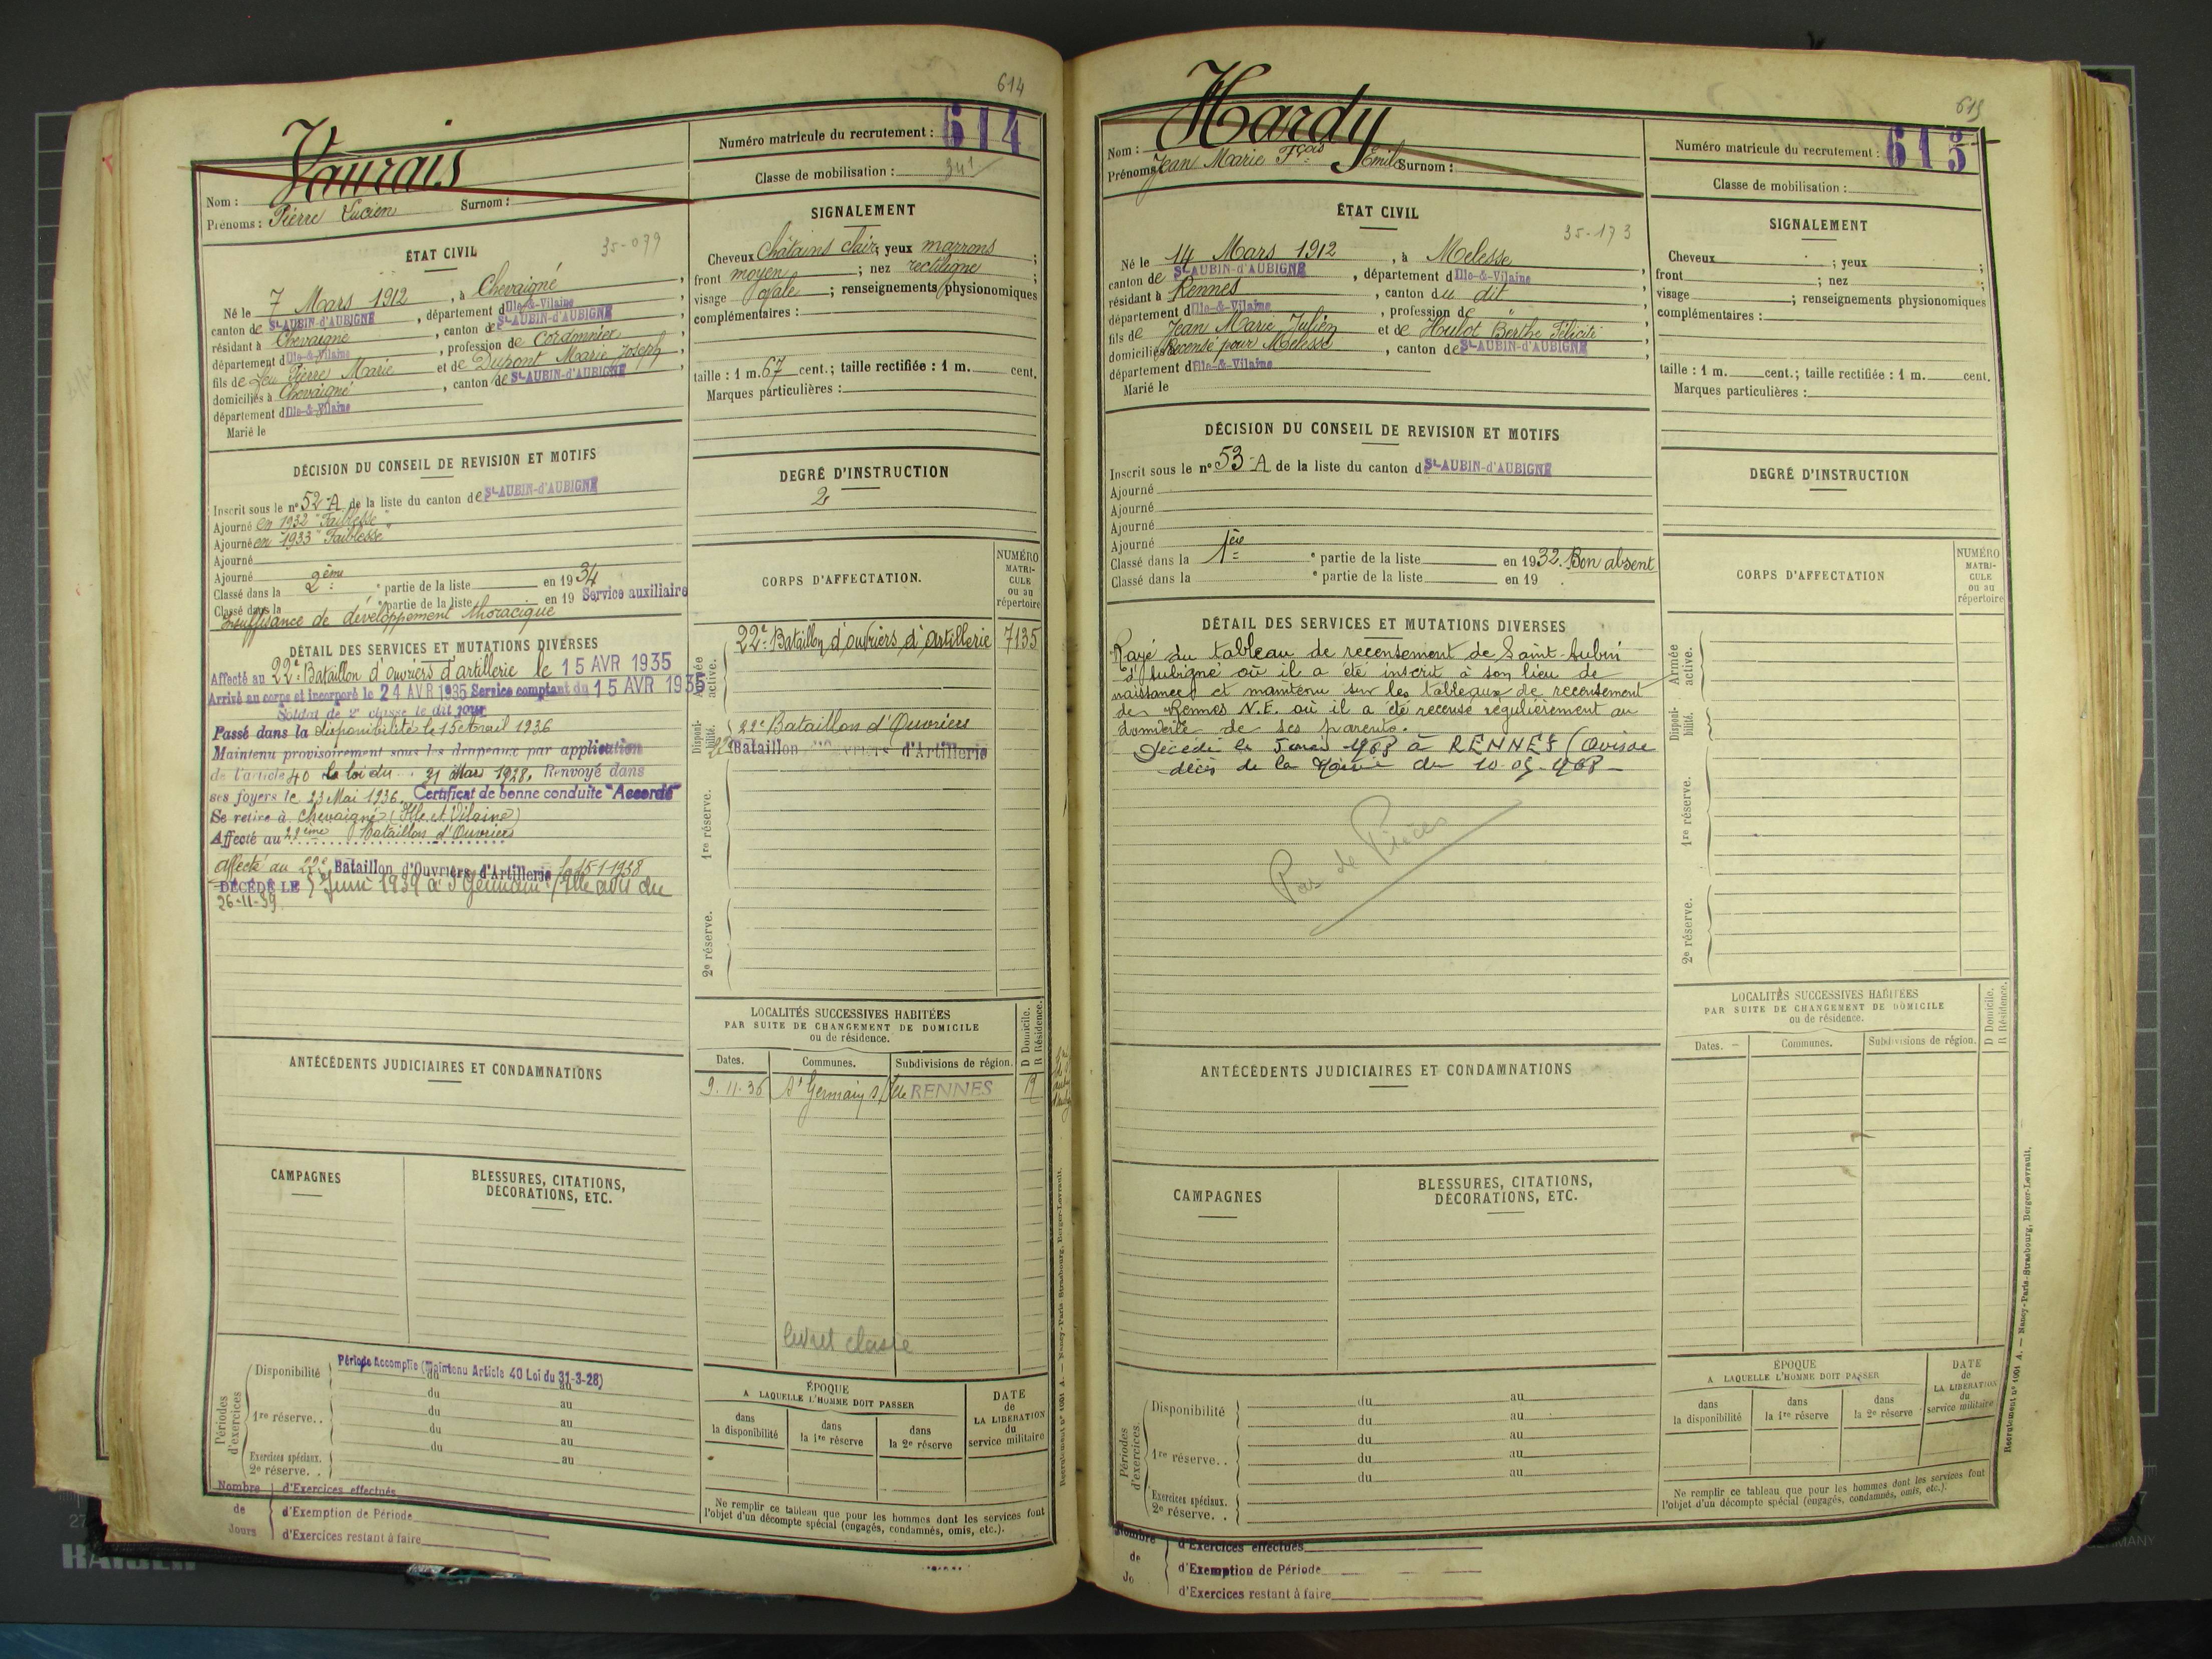 614
Vaurais
Nom :
Prénoms : Pierre Lucien Surnom :
Numéro matricule du recrutement : 614
Classe de mobilisation : 341
ÉTAT CIVIL
35-079
Né le 7 Mars 1912, à Chevaigné,
canton de St-AUBIN-d'AUBIGNÉ, département d'Ille-&-Vilaine,
résidant à Chevaigné, canton de St-AUBIN-d'AUBIGNÉ,
département d'Ille-&-Vilaine, profession de Cordonnier,
fils de feu Pierre Marie et de Dupont Marie Joseph,
domiciliés à Chevaigné, canton de St-AUBIN-d'AUBIGNÉ
département d'Ille-&-Vilaine
Marié le
SIGNALEMENT
Cheveux Châtains clair ; yeux marrons ;
front moyen ; nez rectiligne ;
visage ovale ; renseignements physionomiques
complémentaires :
taille : 1 m. 67 cent.; taille rectifiée : 1 m. cent.
Marques particulières :
DÉCISION DU CONSEIL DE REVISION ET MOTIFS
Inscrit sous le n° 52-A de la liste du canton de St-AUBIN-d'AUBIGNÉ
Ajourné en 1932 "Faiblesse"
Ajourné en 1933 "Faiblesse"
Ajourné
Ajourné
Classé dans la 2ème partie de la liste en 1934
Classé dans la e partie de la liste en 19 Service auxiliaire
Insuffisance de développement thoracique
DEGRÉ D'INSTRUCTION
2
DÉTAIL DES SERVICES ET MUTATIONS DIVERSES
Affecté au 22e Bataillon d'ouvriers d'artillerie le 15 AVR 1935
Arrivé au corps et incorporé le 24 AVR 1935 Service comptant du 15 AVR 1935
Soldat de 2e classe le dit jour
Passé dans la disponibilité le 15 Avril 1936
Maintenu provisoirement sous les drapeaux par application
de l'article 40 la loi du 31 Mars 1928. Renvoyé dans
ses foyers le 23 Mai 1936. Certificat de bonne conduite "Accordé"
Se retire à Chevaigné (Ille et Vilaine)
Affecté au 22ème Bataillon d'Ouvriers
Affecté au 22e Bataillon d'Ouvriers d'Artillerie le 15-1-1938
DÉCÉDÉ LE 5 Juin 1939 à St Germain s/Ille avis du
26-11-39
CORPS D'AFFECTATION.
NUMÉRO
MATRI-
CULE
ou au
répertoire
Armée active.
22e Bataillon d'ouvriers d'artillerie 7135
Disponi-
bilité.
22e Bataillon d'Ouvriers
22e Bataillon d'Ouvriers d'Artillerie
1re réserve.
2e réserve.
LOCALITÉS SUCCESSIVES HABITÉES
PAR SUITE DE CHANGEMENT DE DOMICILE
ou de résidence.
D Domicile.
R Résidence.
Dates. Communes. Subdivisions de région.
9.11.36 St Germain s/Ille RENNES R
ANTÉCÉDENTS JUDICIAIRES ET CONDAMNATIONS
CAMPAGNES
BLESSURES, CITATIONS,
DÉCORATIONS, ETC.
livret classe
Périodes
d'exercices
Disponibilité
Période Accomplie (Maintenu Article 40 Loi du 31-3-28)
du au
du au
1re réserve..
du au
du au
du au
Exercices spéciaux.
2e réserve. .
au
Nombre
de
Jours
d'Exercices effectués
d'Exemption de Période
d'Exercices restant à faire
ÉPOQUE
A LAQUELLE L'HOMME DOIT PASSER
dans
la disponibilité
dans
la 1re réserve
dans
la 2e réserve
DATE
de
LA LIBÉRATION
du
service militaire
Ne remplir ce tableau que pour les hommes dont les services font
l'objet d'un décompte spécial (engagés, condamnés, omis, etc.).
Recrutement n° 1051 A. — Nancy-Paris-Strasbourg, Berger-Levrault.
615
Hardy
Nom :
Prénoms Jean Marie Fçois Émile Surnom :
Numéro matricule du recrutement : 615
Classe de mobilisation :
ÉTAT CIVIL
35-173
Né le 14 Mars 1912, à Melesse,
canton de St-AUBIN-d'AUBIGNÉ, département d'Ille-&-Vilaine,
résidant à Rennes, canton du dit,
département d'Ille-&-Vilaine, profession de "
fils de Jean Marie Julien et de Hulot Berthe Félicité,
domiciliés Recensé pour Melesse, canton de St-AUBIN-d'AUBIGNÉ
département d'Ille-&-Vilaine
Marié le
SIGNALEMENT
Cheveux ; yeux ;
front ; nez ;
visage ; renseignements physionomiques
complémentaires :
taille : 1 m. cent.; taille rectifiée : 1 m. cent.
Marques particulières :
DÉCISION DU CONSEIL DE REVISION ET MOTIFS
Inscrit sous le n° 53-A de la liste du canton d St-AUBIN-d'AUBIGNÉ
Ajourné
Ajourné
Ajourné
Ajourné
Classé dans la 1ère e partie de la liste en 1932. Bon absent
Classé dans la e partie de la liste en 19 .
DEGRÉ D'INSTRUCTION
DÉTAIL DES SERVICES ET MUTATIONS DIVERSES
Rayé du tableau de recensement de Saint-Aubin
d'Aubigné où il a été inscrit à son lieu de
naissance et maintenu sur les tableaux de recensement
de Rennes N.E. où il a été recensé régulièrement au
domicile de ses parents.
Décédé le 5 mai 1968 à RENNES (Avis de
décès de la Mairie du 10-05-1968
Pas de Pièces
CORPS D'AFFECTATION
NUMÉRO
MATRI-
CULE
ou au
répertoire
Armée active.
Disponi-
bilité.
1re réserve.
2e réserve.
LOCALITÉS SUCCESSIVES HABITÉES
PAR SUITE DE CHANGEMENT DE DOMICILE
ou de résidence.
D Domicile.
R Résidence.
Dates. Communes. Subdivisions de région.
ANTÉCÉDENTS JUDICIAIRES ET CONDAMNATIONS
CAMPAGNES
BLESSURES, CITATIONS,
DÉCORATIONS, ETC.
Périodes
d'exercices
Disponibilité
du au
du au
1re réserve..
du au
du au
du au
Exercices spéciaux.
2e réserve. .
Nombre
de
Jo
d'Exercices effectués
d'Exemption de Période
d'Exercices restant à faire
ÉPOQUE
A LAQUELLE L'HOMME DOIT PASSER
dans
la disponibilité
dans
la 1re réserve
dans
la 2e réserve
DATE
de
LA LIBÉRATION
du
service militaire
Ne remplir ce tableau que pour les hommes dont les services font
l'objet d'un décompte spécial (engagés, condamnés, omis, etc.).
Recrutement n° 1051 A. — Nancy-Paris-Strasbourg, Berger-Levrault.